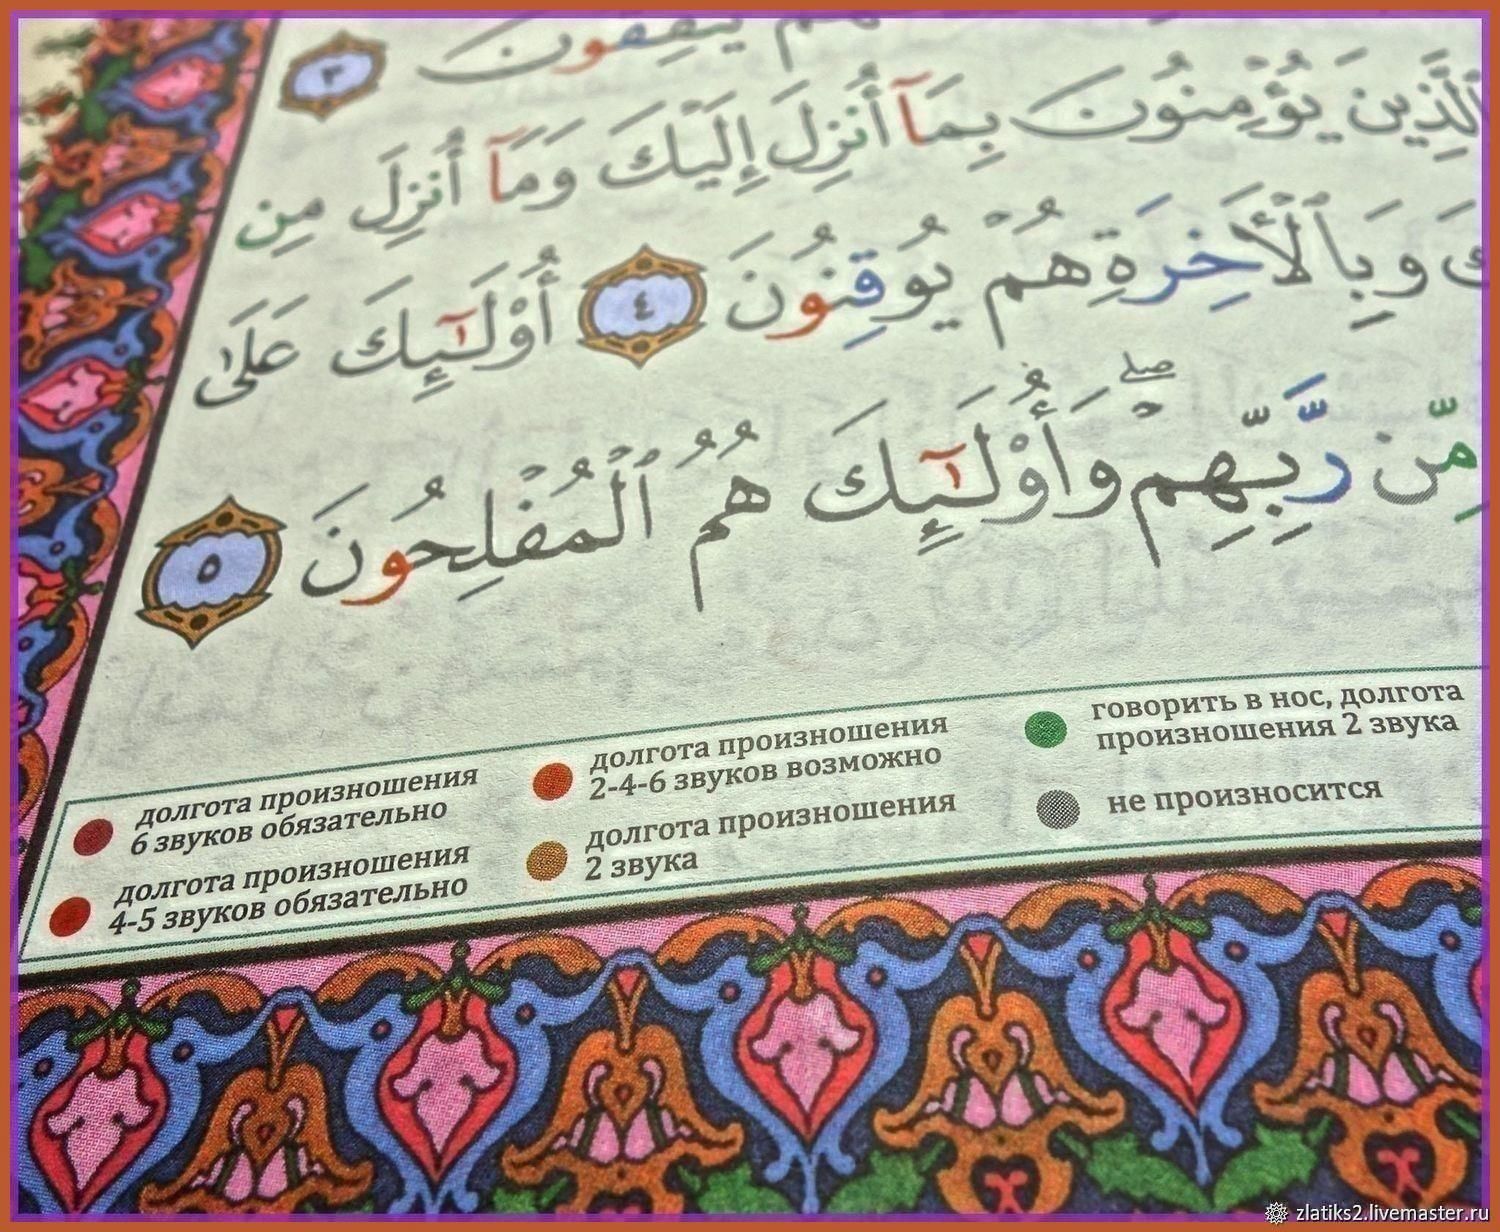 يُنفِقُونَ ٣
ٱلَّذِينَ يُؤْمِنُونَ بِمَآ أُنزِلَ إِلَيْكَ وَمَآ أُنزِلَ مِن
وَبِٱلْأَخِرَةِ هُمْ يُوقِنُونَ ٤ أُو۟لَـٰٓئِكَ عَلَىٰ
مِّن رَّبِّهِمْ ۖ وَأُو۟لَـٰٓئِكَ هُمُ ٱلْمُفْلِحُونَ ٥
долгота произношения
6 звуков обязательно
долгота произношения
4-5 звуков обязательно
долгота произношения
2-4-6 звуков возможно
долгота произношения
2 звука
говорить в нос, долгота
произношения 2 звука
не произносится
zlatiks2.livemaster.ru